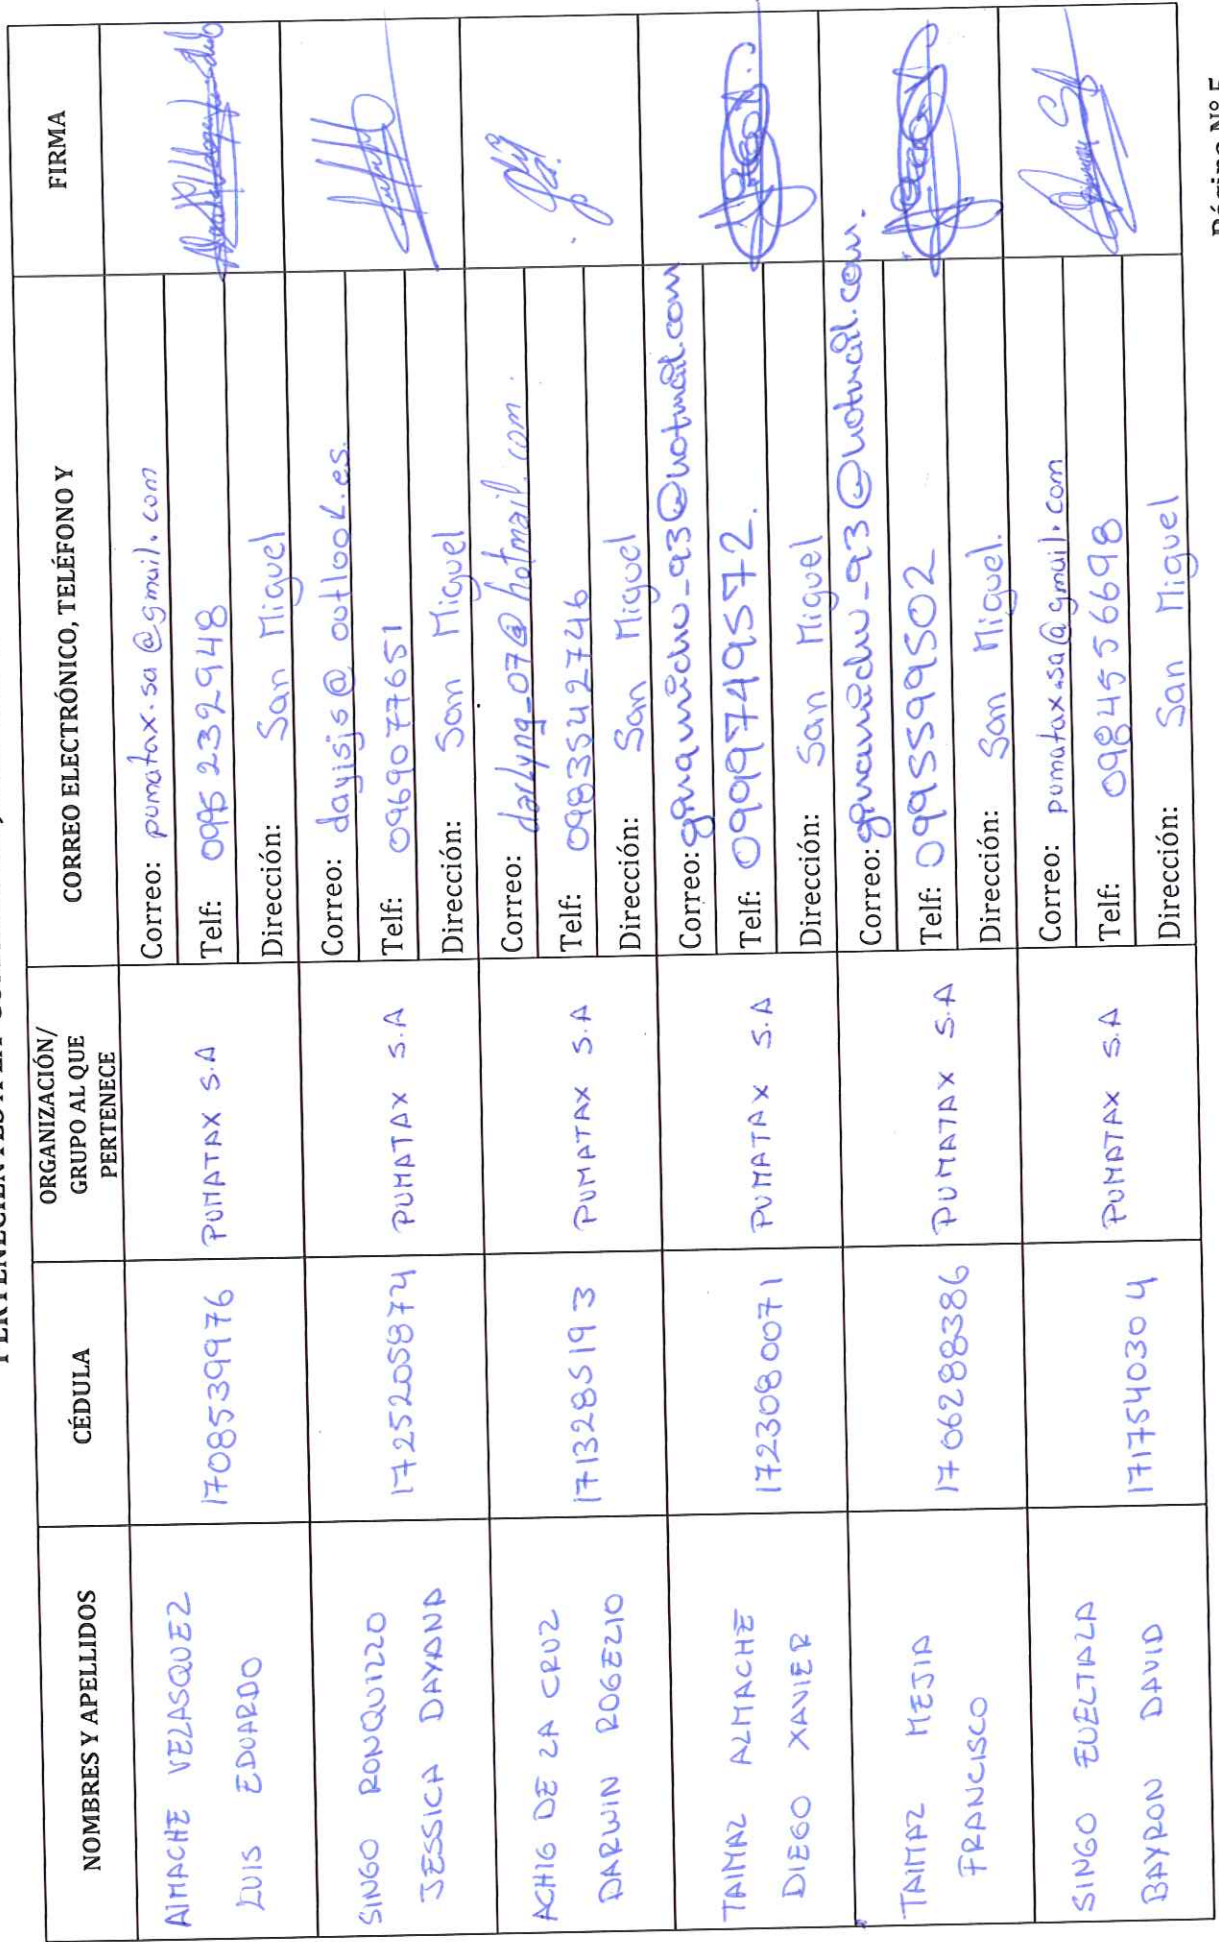 NOMBRES Y APELLIDOS
CÉDULA
ORGANIZACIÓN/
GRUPO AL QUE
PERTENECE
CORREO ELECTRÓNICO, TELÉFONO Y
FIRMA
AlMACHE VELASQUEZ
LUIS EDUARDO
1708539976
PUMATAX S.A
Correo: pumatax.sa@gmail.com
Telf: 0995 2332948
Dirección: San Miguel
SINGO RONQUILLO
JESSICA DAYANA
1725205874
PUMATAX S.A
Correo: dayisjs@outlook.es.
Telf: 0969077651
Dirección: San Miguel
ACHIG DE LA CRUZ
DARWIN ROGELIO
1713285193
PUMATAX S.A
Correo: darlyng_07@hotmail.com.
Telf: 0983542746
Dirección: San Miguel
TAIMAL ALMACHE
DIEGO XAVIER
1723080071
PUMATAX S.A
Correo:
Telf: 0999749572.
Dirección: San Miguel
TAIMAL MEJIA
FRANCISCO
1706288386
PUMATAX S.A
Correo:
Telf: 0995599502
Dirección: San Miguel.
SINGO
BAYRON DAVID
1717540304
PUMATAX S.A
Correo: pumatax.sa@gmail.com
Telf: 0984556698
Dirección: San Miguel
Página N° 5